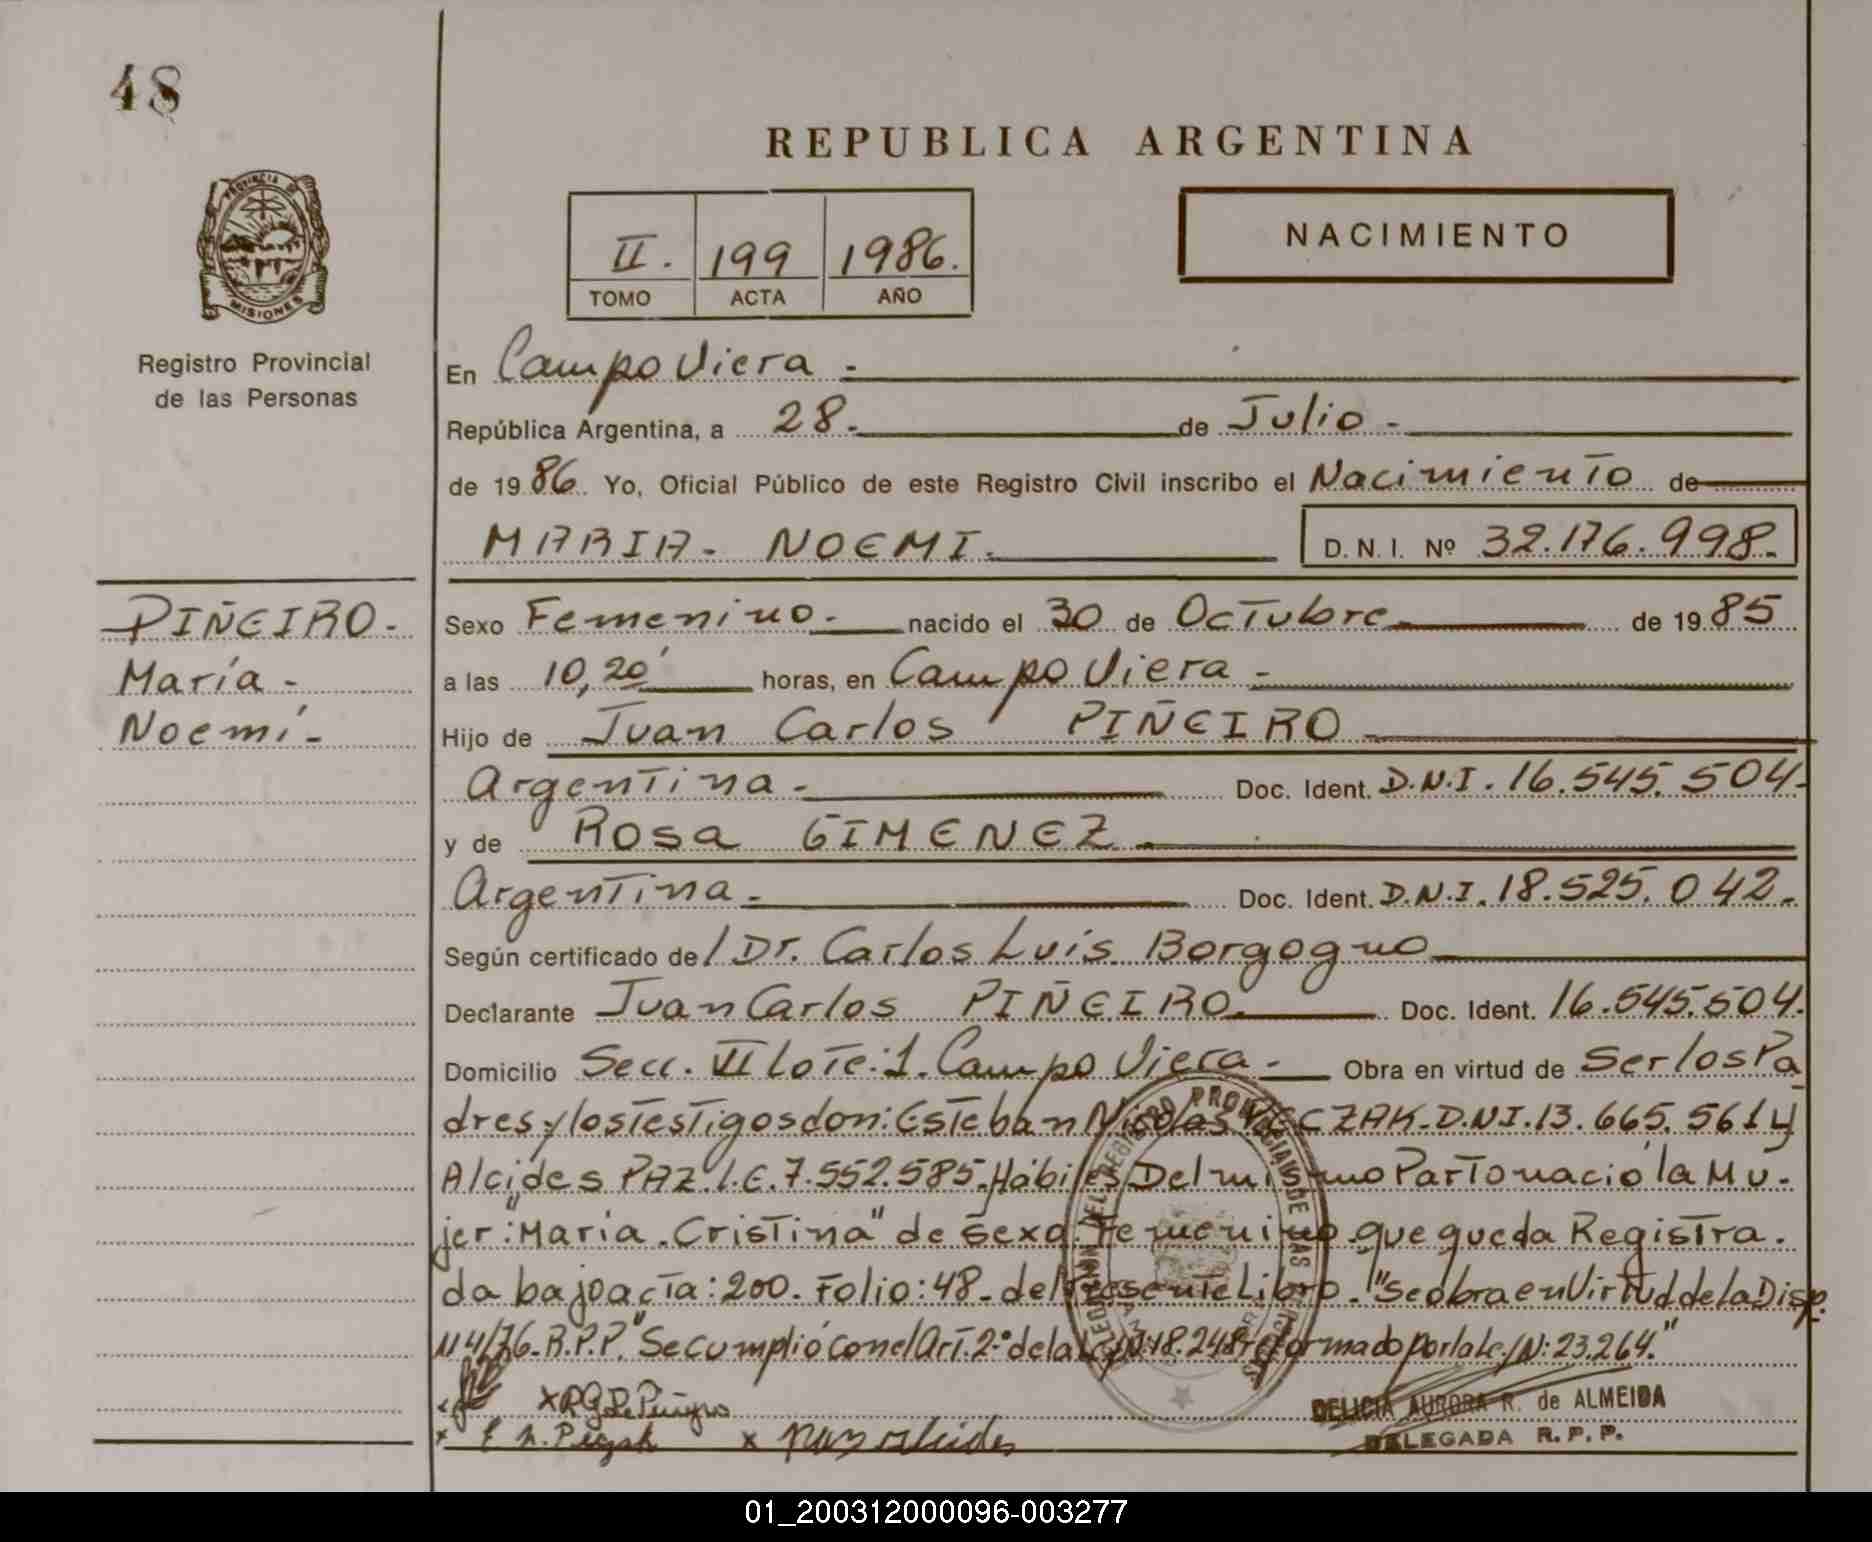 48
REPUBLICA ARGENTINA
PROVINCIA DE
MISIONES
Registro Provincial
de las Personas
II. 199 1986.
TOMO ACTA AÑO
NACIMIENTO
En Campo Viera -
República Argentina, a 28. de Julio -
de 1986. Yo, Oficial Público de este Registro Civil inscribo el Nacimiento de
MARIA - NOEMI. D. N. I. Nº 32.176.998.-
PIÑEIRO.-
María -
Noemí -
Sexo Femenino.- nacido el 30 de Octubre de 1985
a las 10,20' horas, en Campo Viera -
Hijo de Juan Carlos PIÑEIRO
Argentina.- Doc. Ident. D.N.I. 16.545.504.-
y de Rosa GIMENEZ
Argentina.- Doc. Ident. D.N.I. 18.525.042.-
Según certificado de / Dr. Carlos Luis Borgogno
Declarante Juan Carlos PIÑEIRO. Doc. Ident. 16.545.504.
Domicilio Secc. VI Lote:1. Campo Viera.- Obra en virtud de Ser los Pa
dres y los Testigos don: Esteban Nicolas D.N.I. 13.665.561 y
Alcides PAZ. L.E. 7.552.585. Hábiles Del mismo Parto nació la Mu-
jer: "María. Cristina" de sexo Femenino que queda Registra.
da bajo acta: 200. Folio: 48.- del Presente Libro. "Se obra en Virtud de la Disp.
114/76. R.P.P." Se cumplió con el Art. 2º de la Ley N: 18.248 reformado por la Ley N: 23.264."
DELEGACION DEL REGISTRO PROVINCIAL DE LAS PERSONAS
x x
DELICIA AURORA R. de ALMEIDA
DELEGADA R. P. P.
01_200312000096-003277